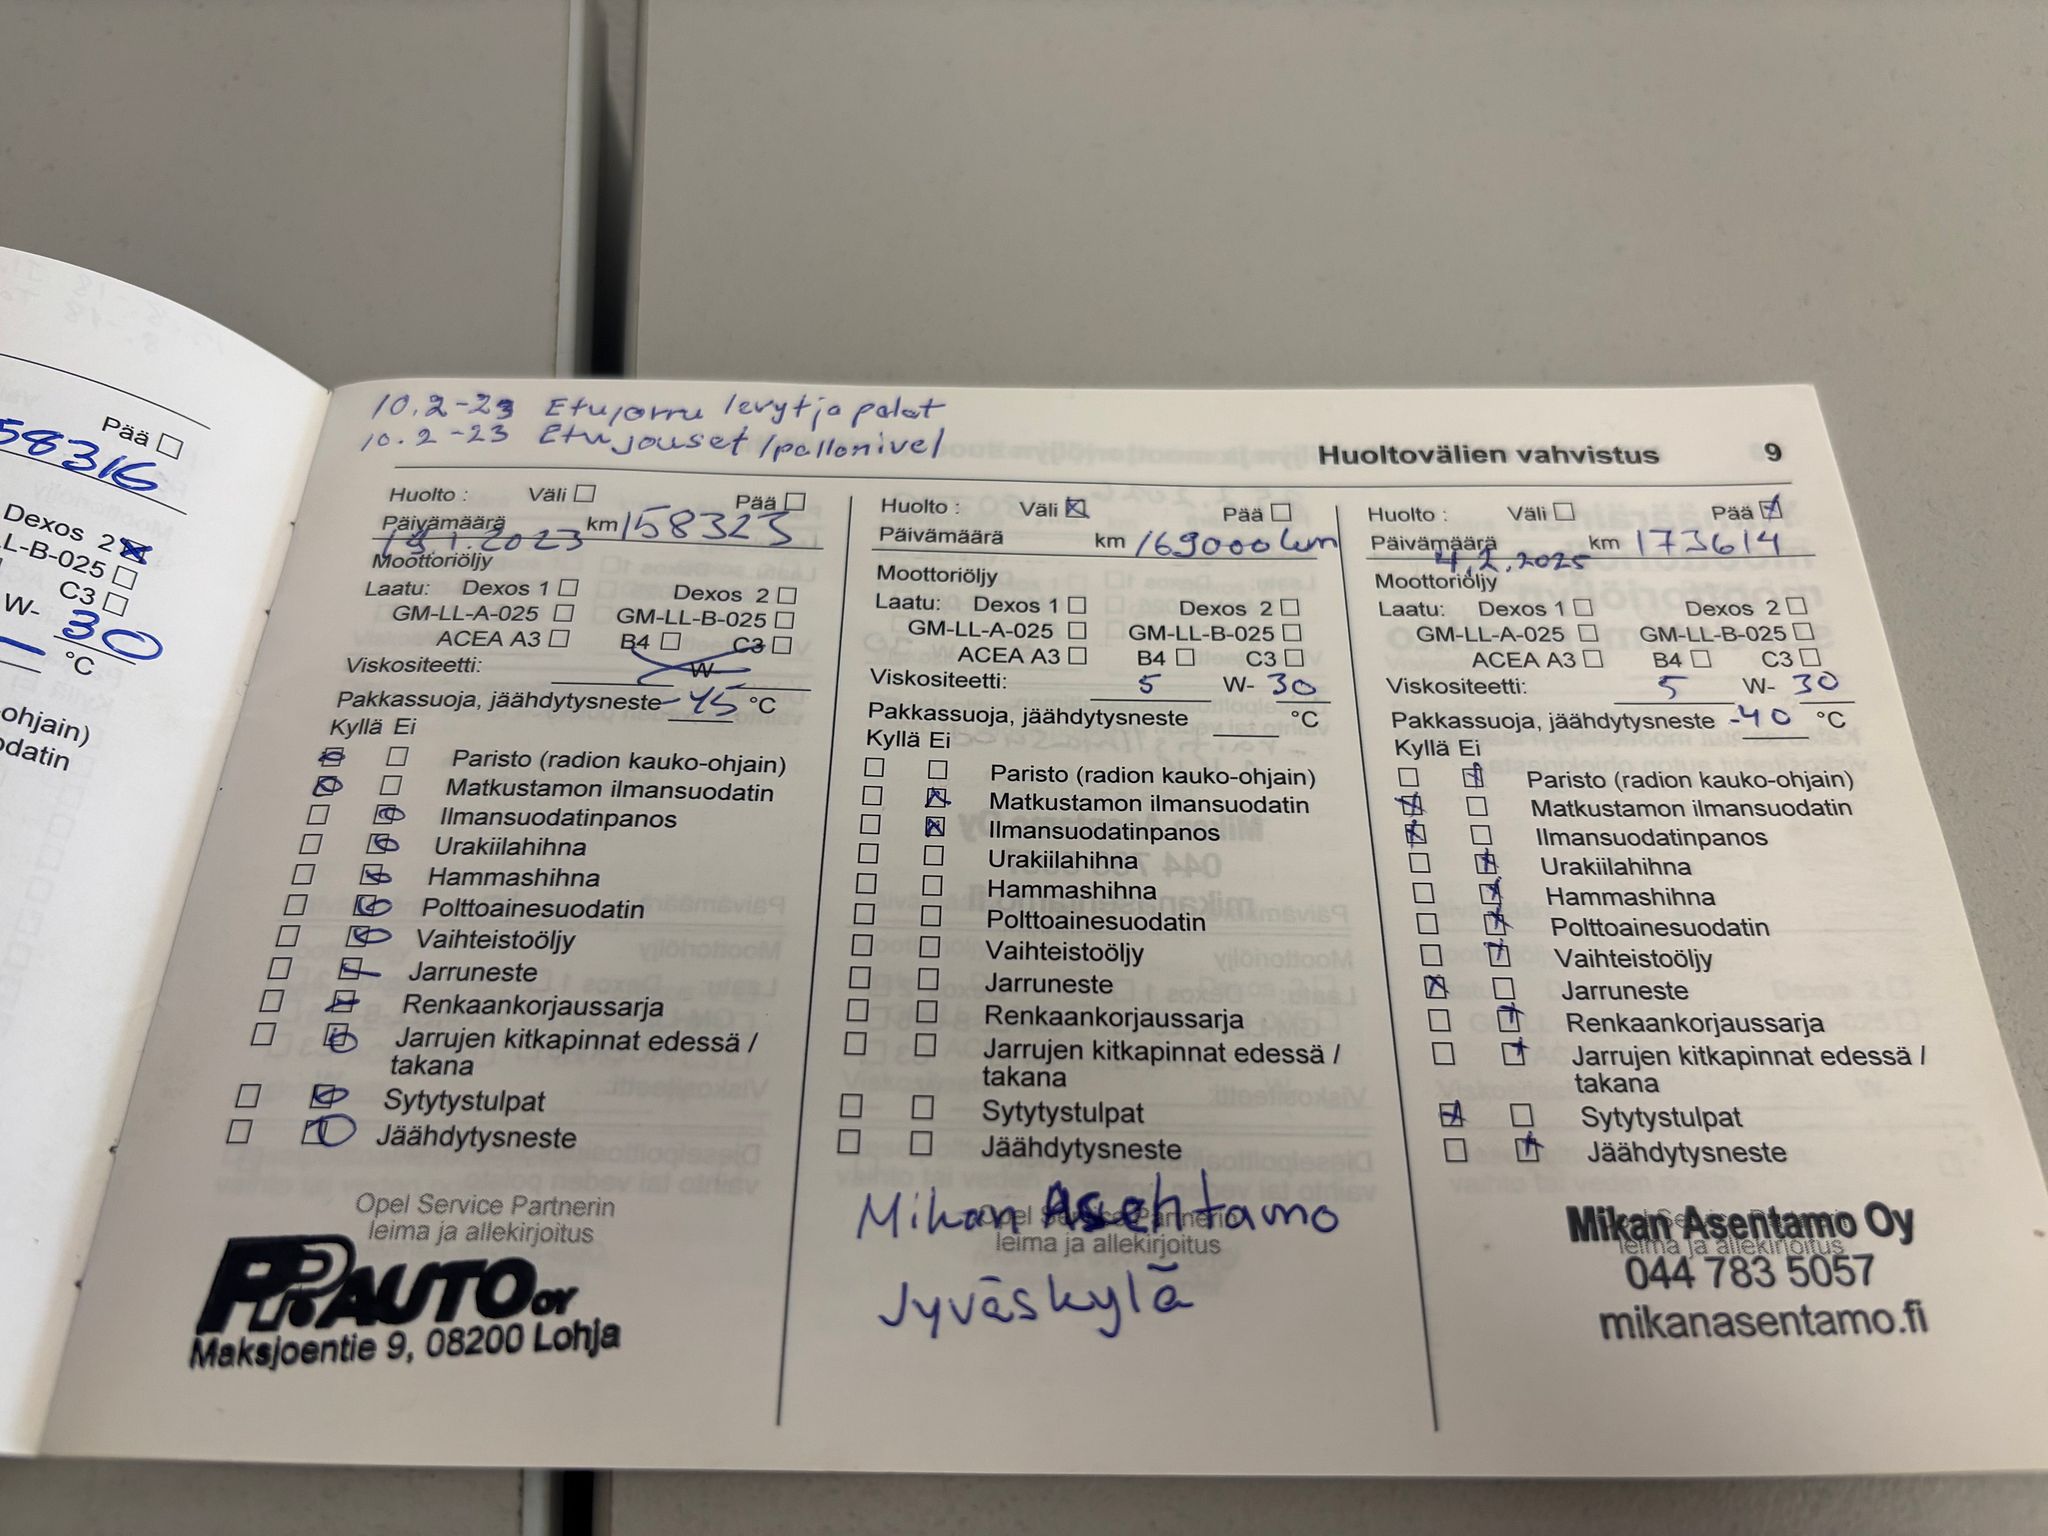 Pää ☐
58316
Dexos 2 ☒
LL-B-025 ☐
C3 ☐
W- 30
°C
ohjain)
odatin
10.2-23 Etujarru levyt ja palat
10.2-23 Etujouset/pallonivel
Huoltovälien vahvistus 9
Huolto : Väli ☐ Pää ☐
Päivämäärä 19.1.2023 km 158323
Moottoriöljy
Laatu: Dexos 1 ☐ Dexos 2 ☐
GM-LL-A-025 ☐ GM-LL-B-025 ☐
ACEA A3 ☐ B4 ☐ C3 ☐
Viskositeetti: W-
Pakkassuoja, jäähdytysneste -45 °C
Kyllä Ei
☒ ☐ Paristo (radion kauko-ohjain)
☒ ☐ Matkustamon ilmansuodatin
☐ ☒ Ilmansuodatinpanos
☐ ☒ Urakiilahihna
☐ ☒ Hammashihna
☐ ☒ Polttoainesuodatin
☐ ☒ Vaihteistoöljy
☐ ☒ Jarruneste
☐ ☒ Renkaankorjaussarja
☐ ☒ Jarrujen kitkapinnat edessä /
takana
☐ ☒ Sytytystulpat
☐ ☒ Jäähdytysneste
Opel Service Partnerin
leima ja allekirjoitus
PR AUTO OY
Maksjoentie 9, 08200 Lohja
Huolto : Väli ☒ Pää ☐
Päivämäärä km 169000km
Moottoriöljy
Laatu: Dexos 1 ☐ Dexos 2 ☐
GM-LL-A-025 ☐ GM-LL-B-025 ☐
ACEA A3 ☐ B4 ☐ C3 ☐
Viskositeetti: 5 W- 30
Pakkassuoja, jäähdytysneste °C
Kyllä Ei
☐ ☐ Paristo (radion kauko-ohjain)
☐ ☒ Matkustamon ilmansuodatin
☐ ☒ Ilmansuodatinpanos
☐ ☐ Urakiilahihna
☐ ☐ Hammashihna
☐ ☐ Polttoainesuodatin
☐ ☐ Vaihteistoöljy
☐ ☐ Jarruneste
☐ ☐ Renkaankorjaussarja
☐ ☐ Jarrujen kitkapinnat edessä /
takana
☐ ☐ Sytytystulpat
☐ ☐ Jäähdytysneste
Opel Service Partnerin
Mikan Asentamo
leima ja allekirjoitus
Jyväskylä
Huolto : Väli ☐ Pää ☒
Päivämäärä 4.2.2025 km 173614
Moottoriöljy
Laatu: Dexos 1 ☐ Dexos 2 ☐
GM-LL-A-025 ☐ GM-LL-B-025 ☐
ACEA A3 ☐ B4 ☐ C3 ☐
Viskositeetti: 5 W- 30
Pakkassuoja, jäähdytysneste -40 °C
Kyllä Ei
☐ ☒ Paristo (radion kauko-ohjain)
☒ ☐ Matkustamon ilmansuodatin
☒ ☐ Ilmansuodatinpanos
☐ ☒ Urakiilahihna
☐ ☒ Hammashihna
☐ ☒ Polttoainesuodatin
☐ ☒ Vaihteistoöljy
☒ ☐ Jarruneste
☐ ☒ Renkaankorjaussarja
☐ ☒ Jarrujen kitkapinnat edessä /
takana
☒ ☐ Sytytystulpat
☐ ☒ Jäähdytysneste
Mikan Asentamo Oy
leima ja allekirjoitus
044 783 5057
mikanasentamo.fi